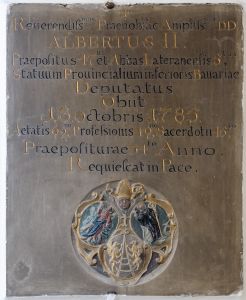 Reverendiss. Praenob. ac Ampliss. DD
ALBERTUS II.
Praepositus et Abbas Lateranensis
Statuum Provincialium inferioris Bavariae
Deputatus
Obiit
Octobris
Aetatis Professionis Sacerdotii
Praepositurae Anno.
Requiescat in Pace.